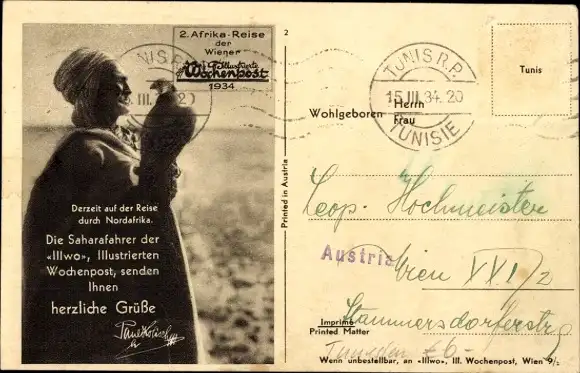 2. Afrika-Reise
der
Wiener
Illustrierte
Wochenpost
1934
Derzeit auf der Reise
durch Nordafrika.
Die Saharafahrer der
«Illwo», Illustrierten
Wochenpost, senden
Ihnen
herzliche Grüße
2
Printed in Austria
TUNIS R.P.
15 III 34. 20
TUNISIE
Tunis
Wohlgeboren Herrn
Frau
Leop. Hochmeister
Austria
Wien XXI/2
Stammersdorferstr.
Imprimé
Printed Matter
Wenn unbestellbar, an «Illwo», Ill. Wochenpost, Wien 9/2